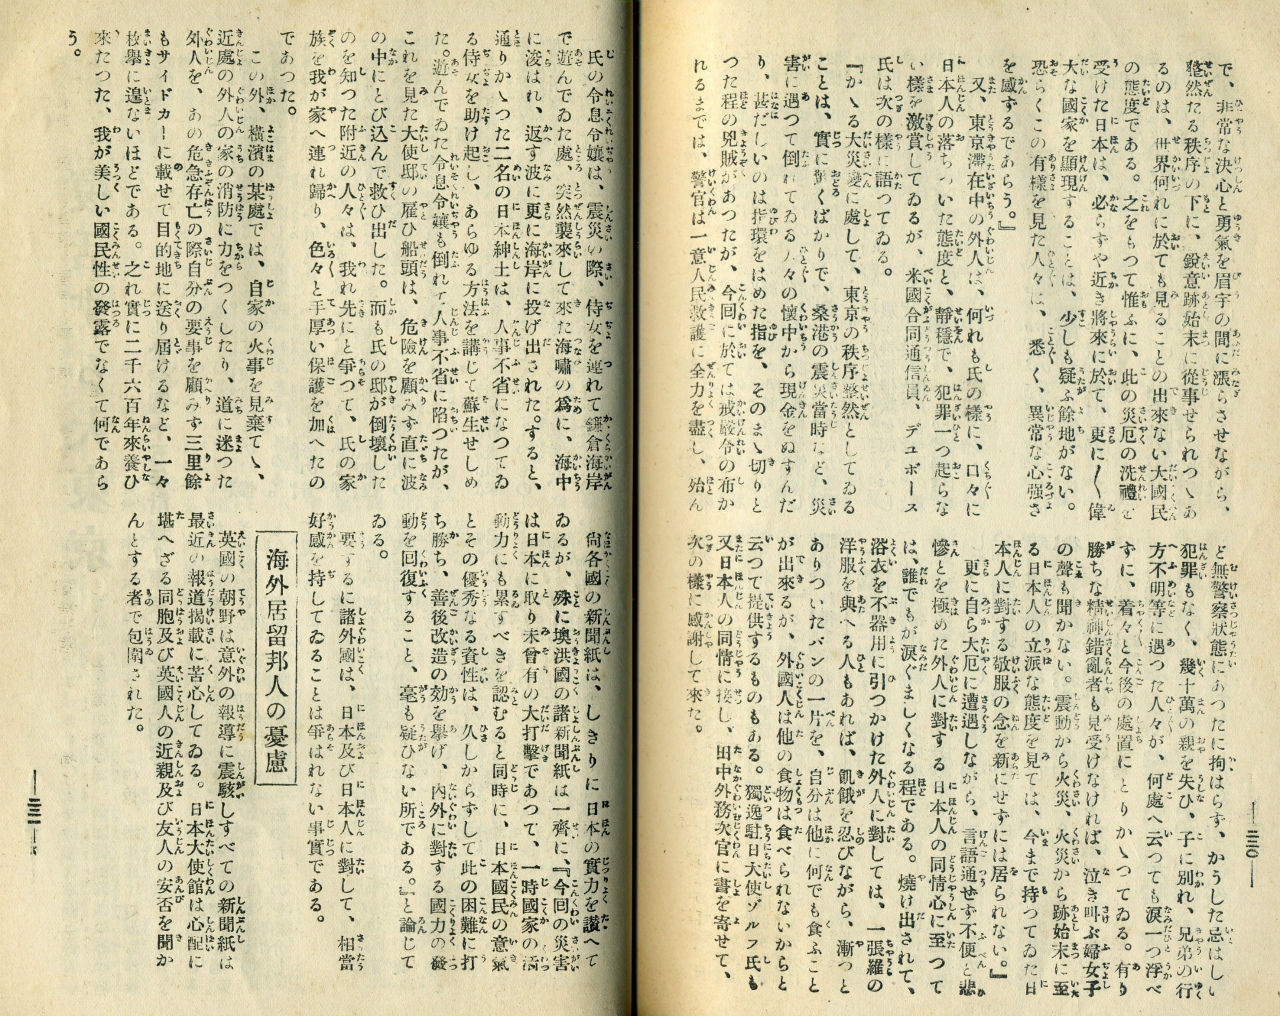 で、非常な決心と勇氣を眉宇の間に漲らさせながら、
整然たる秩序の下に、銳意跡始末に從事せられつゝあ
るのは、世界何れに於ても見ることの出來ない大國民
の態度である。之をもつて惟ふに、此の災厄の洗禮を
受けた日本は、必らずや近き將來に於て、更に〱偉
大な國家を顯現することは、少しも疑ふ餘地がない。
恐らくこの有樣を見た人々は、悉く、異常な心强さ
を感ずるであらう。』
又、東京滯在中の外人は、何れも氏の樣に、口々に
日本人の落ちついた態度と、靜穩で、犯罪一つ起らな
い樣を激賞してゐるが、米國合同通信員、デュボース
氏は次の樣に語つてゐる。
『かゝる大災變に處して、東京の秩序整然としてゐる
ことは、實に驚くばかりで、桑港の震災當時など、災
害に遇つて倒れてゐる人々の懷中から現金をぬすんだ
り、甚だしいのは指環をはめた指を、そのまゝ切りと
つた程の兇賊があつたが、今回に於ては戒嚴令の布か
れるまでは、警官は一意人民救護に全力を盡し、殆ん
ど無警察狀態にあつたに拘はらず、かうした忌はしい
犯罪もなく、幾十萬の親を失ひ、子に別れ、兄弟の行
方不明等に遇つた人々が、何處へ云つても淚一つ浮べ
ずに、着々と今後の處置にとりかゝつてゐる。有り
勝ちな精神錯亂者も見受けなければ、泣き叫ぶ婦女子
の聲も聞かない。震動から火災、火災から跡始末に至
る日本人の立派な態度を見ては、今まで持つてゐた日
本人に對する敬服の念を新にせずには居られない。』
更に自ら大厄に遭遇しながら、言語通せず不便と悲
慘とを極めた外人に對する日本人の同情心に至つて
は、誰でもが淚ぐましくなる程である。燒け出されて、
浴衣を不器用に引つかけた外人に對しては、一張羅の
洋服を與へる人もあれば、飢餓を忍びながら、漸つと
ありついたパンの一片を、自分は他に何でも食ふこと
が出來るが、外國人は他の食物は食べられないからと
云つて提供するものもある。獨逸駐日大使ゾルフ氏も
又日本人の同情に接し、田中外務次官に書を寄せて、
次の樣に感謝して來た。
―二三〇―
氏の令息令孃は、震災の際、侍女を連れて鎌倉海岸
で遊んでゐた處、突然襲來して來た海嘯の爲に、海中
に浚はれ、返す波に更に海岸に投げ出された。すると、
通りかゝつた二名の日本紳士は、人事不省になつてゐ
る侍女を助け起し、あらゆる方法を講じて蘇生せしめ
た。遊んでゐた令息令孃も倒れて人事不省に陷つたが、
これを見た大使邸の雇ひ船頭は、危險を顧みず直に波
の中にとび込んで救ひ出した。而も氏の邸が倒壞した
のを知つた附近の人々は、我れ先にと爭つて、氏の家
族を我が家へ連れ歸り、色々と手厚い保護を加へたの
であつた。
この外、橫濱の某處では、自家の火事を見棄てゝ、
近處の外人の家の消防に力をつくしたり、道に迷つた
外人を、あの危急存亡の際自分の要事を顧みず三里餘
もサイドカーに載せて目的地に送り屆けるなど、一々
枚擧に遑ないほどである。之れ實に二千六百年來養ひ
來たつた、我が美しい國民性の發露でなくて何であら
う。
尙各國の新聞紙は、しきりに日本の實力を讃へて
ゐるが、殊に墺洪國の諸新聞紙は一齊に、『今回の災害
は日本に取り未曾有の大打擊であつて、一時國家の活
動力にも累すべきを認むると同時に、日本國民の意氣
とその優秀なる資性は、久しからずして此の困難に打
ち勝ち、善後改造の効を擧げ、內外に對する國力の發
動を回復すること、毫も疑ひない所である。』と論じて
ゐる。
要するに諸外國は、日本及び日本人に對して、相當
好感を持してゐることは爭はれない事實である。
海外居留邦人の憂慮
英國の朝野は意外の報導に震駭しすべての新聞紙は
最近の報道揭載に苦心してゐる。日本大使館は心配に
堪へざる同胞及び英國人の近親及び友人の安否を聞か
んとする者で包圍された。
―二三一―